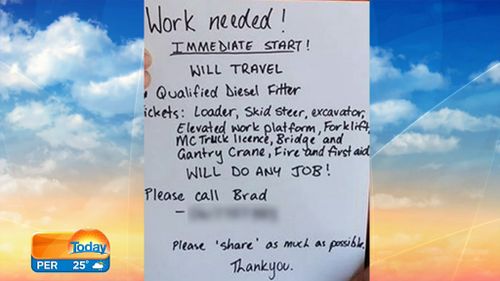 Work needed!
IMMEDIATE START!
WILL TRAVEL
Qualified Diesel Fitter
ickets: Loader, Skid steer, excavator,
Elevated work platform, Forklift,
MC Truck licence, Bridge and
Gantry Crane, Fire and first aid
WILL DO ANY JOB!
Please call Brad
-
Please 'share' as much as possible,
Thankyou.
Today
PER 25°